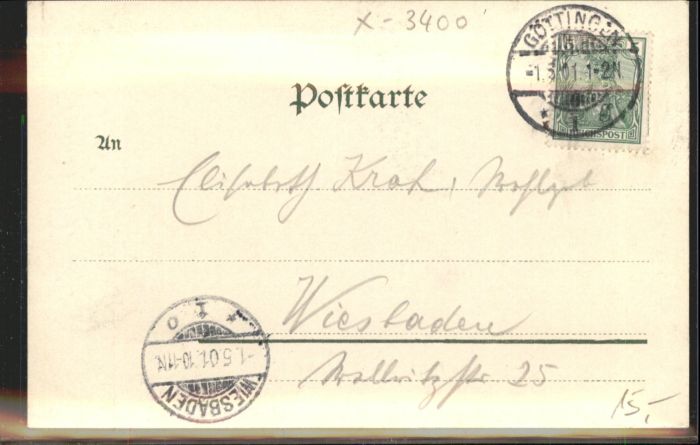 X-3400
GÖTTINGEN
1.5.01.1-2N
* 1 *
REICHSPOST
Postkarte
An
Elisabeth Krah, Wohlgeb
Wiesbaden
Wallritzstr 25
WIESBADEN
1.5.01.10-11N.
* 1 o
15,-